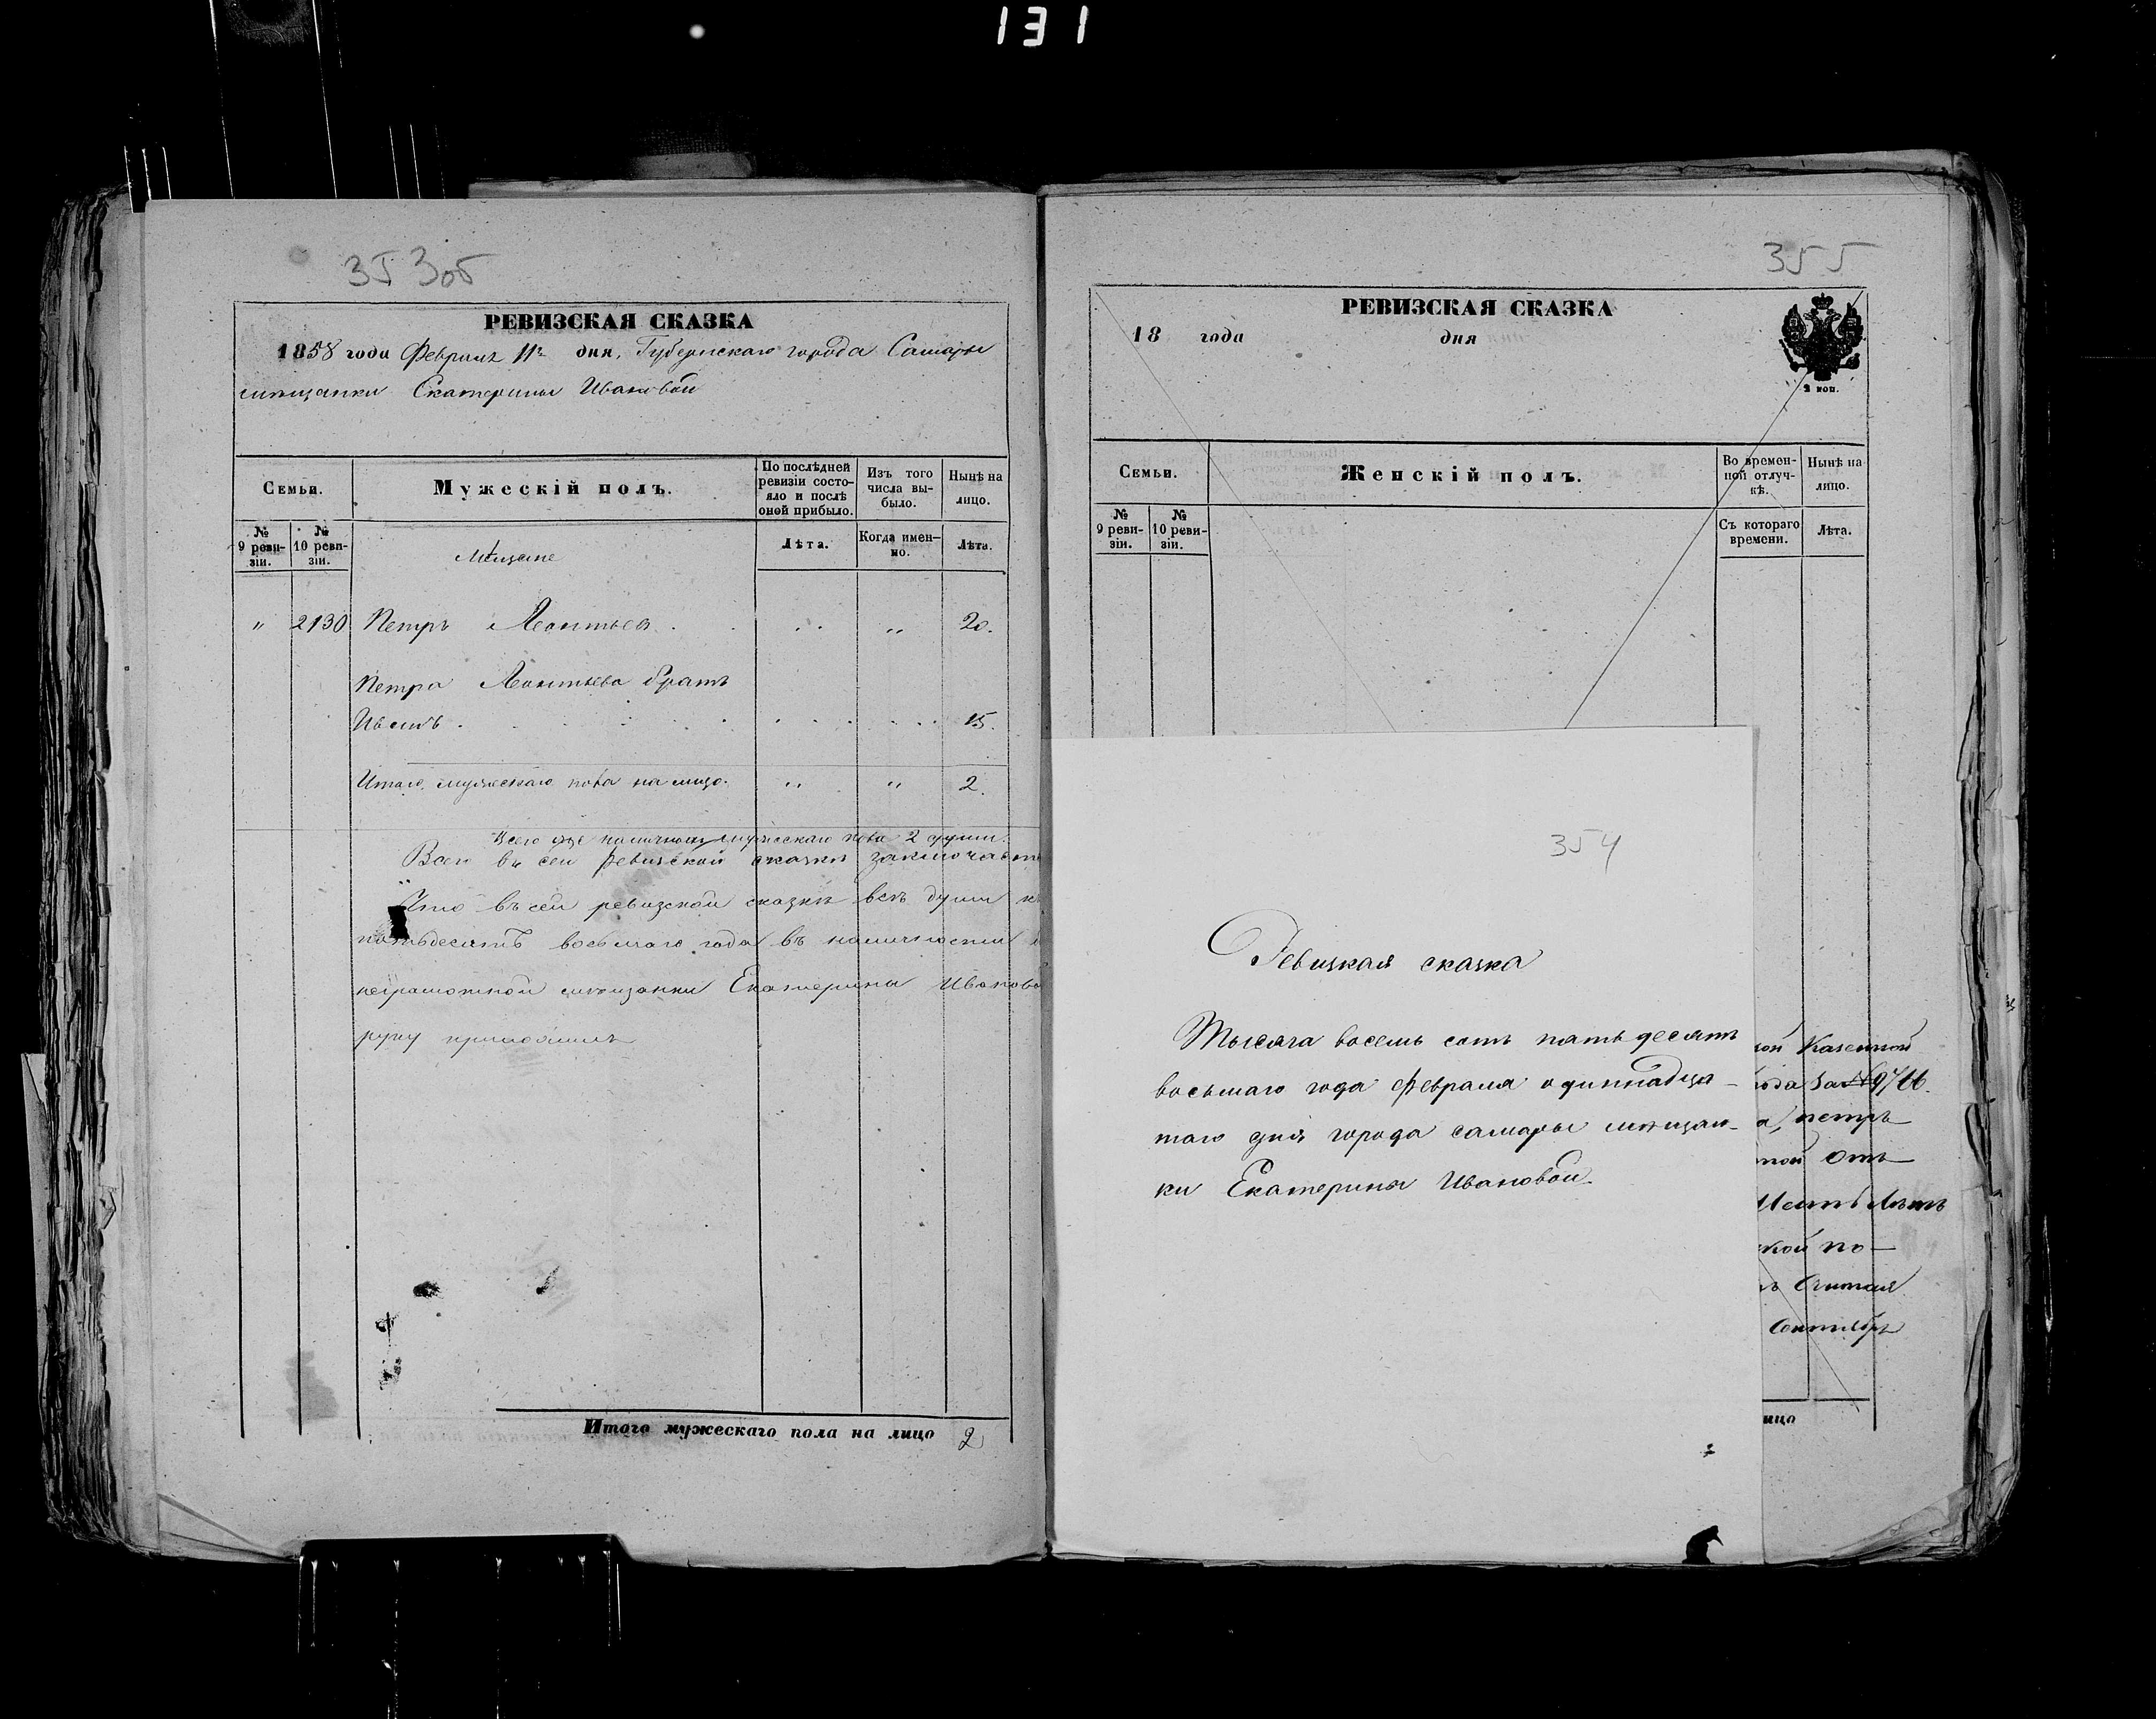 131
353об
РЕВИЗСКАЯ СКАЗКА
1858 года Февраля 11го дня, Губернскаго города Самары
мѣщанки Екатерины Ивановой
Семьи.
Мужескій полъ.
По послѣдней ревизіи состояло и послѣ оной прибыло.
Изъ того числа выбыло.
Нынѣ на лицо.
№ 9 ревизіи.
№ 10 ревизіи.
Мѣщане
Лѣта.
Когда именно.
Лѣта.
" 2130 Петръ Леонтьев . . . „ 20.
Петра Леонтьева братъ
. . . . . . . 15.
Итого, мужескаго пола на лицо. „ „ 2.
Всего наличныхъ мужескаго пола 2 души.
Всего въ сей ревизской сказкѣ
Что въ сей ревизской сказкѣ всѣ души
пятьдесятъ восьмаго года въ наличности
неграмотной мѣщанки Екатерины
руку приложилъ
Итого мужескаго пола на лицо 2
355
РЕВИЗСКАЯ СКАЗКА
18 года дня
2 коп.
Семьи.
Женскій полъ.
Во временной отлучкѣ.
Нынѣ на лицо.
№ 9 ревизіи.
№ 10 ревизіи.
Съ котораго времени.
Лѣта.
354
Ревизкая сказка
Тысяча восемь сотъ пятьдесятъ
восьмаго года февраля одиннадца-
таго дня города самары мѣщан-
ки Екатерины Ивановой.
Казенной
года за №
петръ
отъ
лѣтъ
кой по-
Считая
Сентябрь
ицо